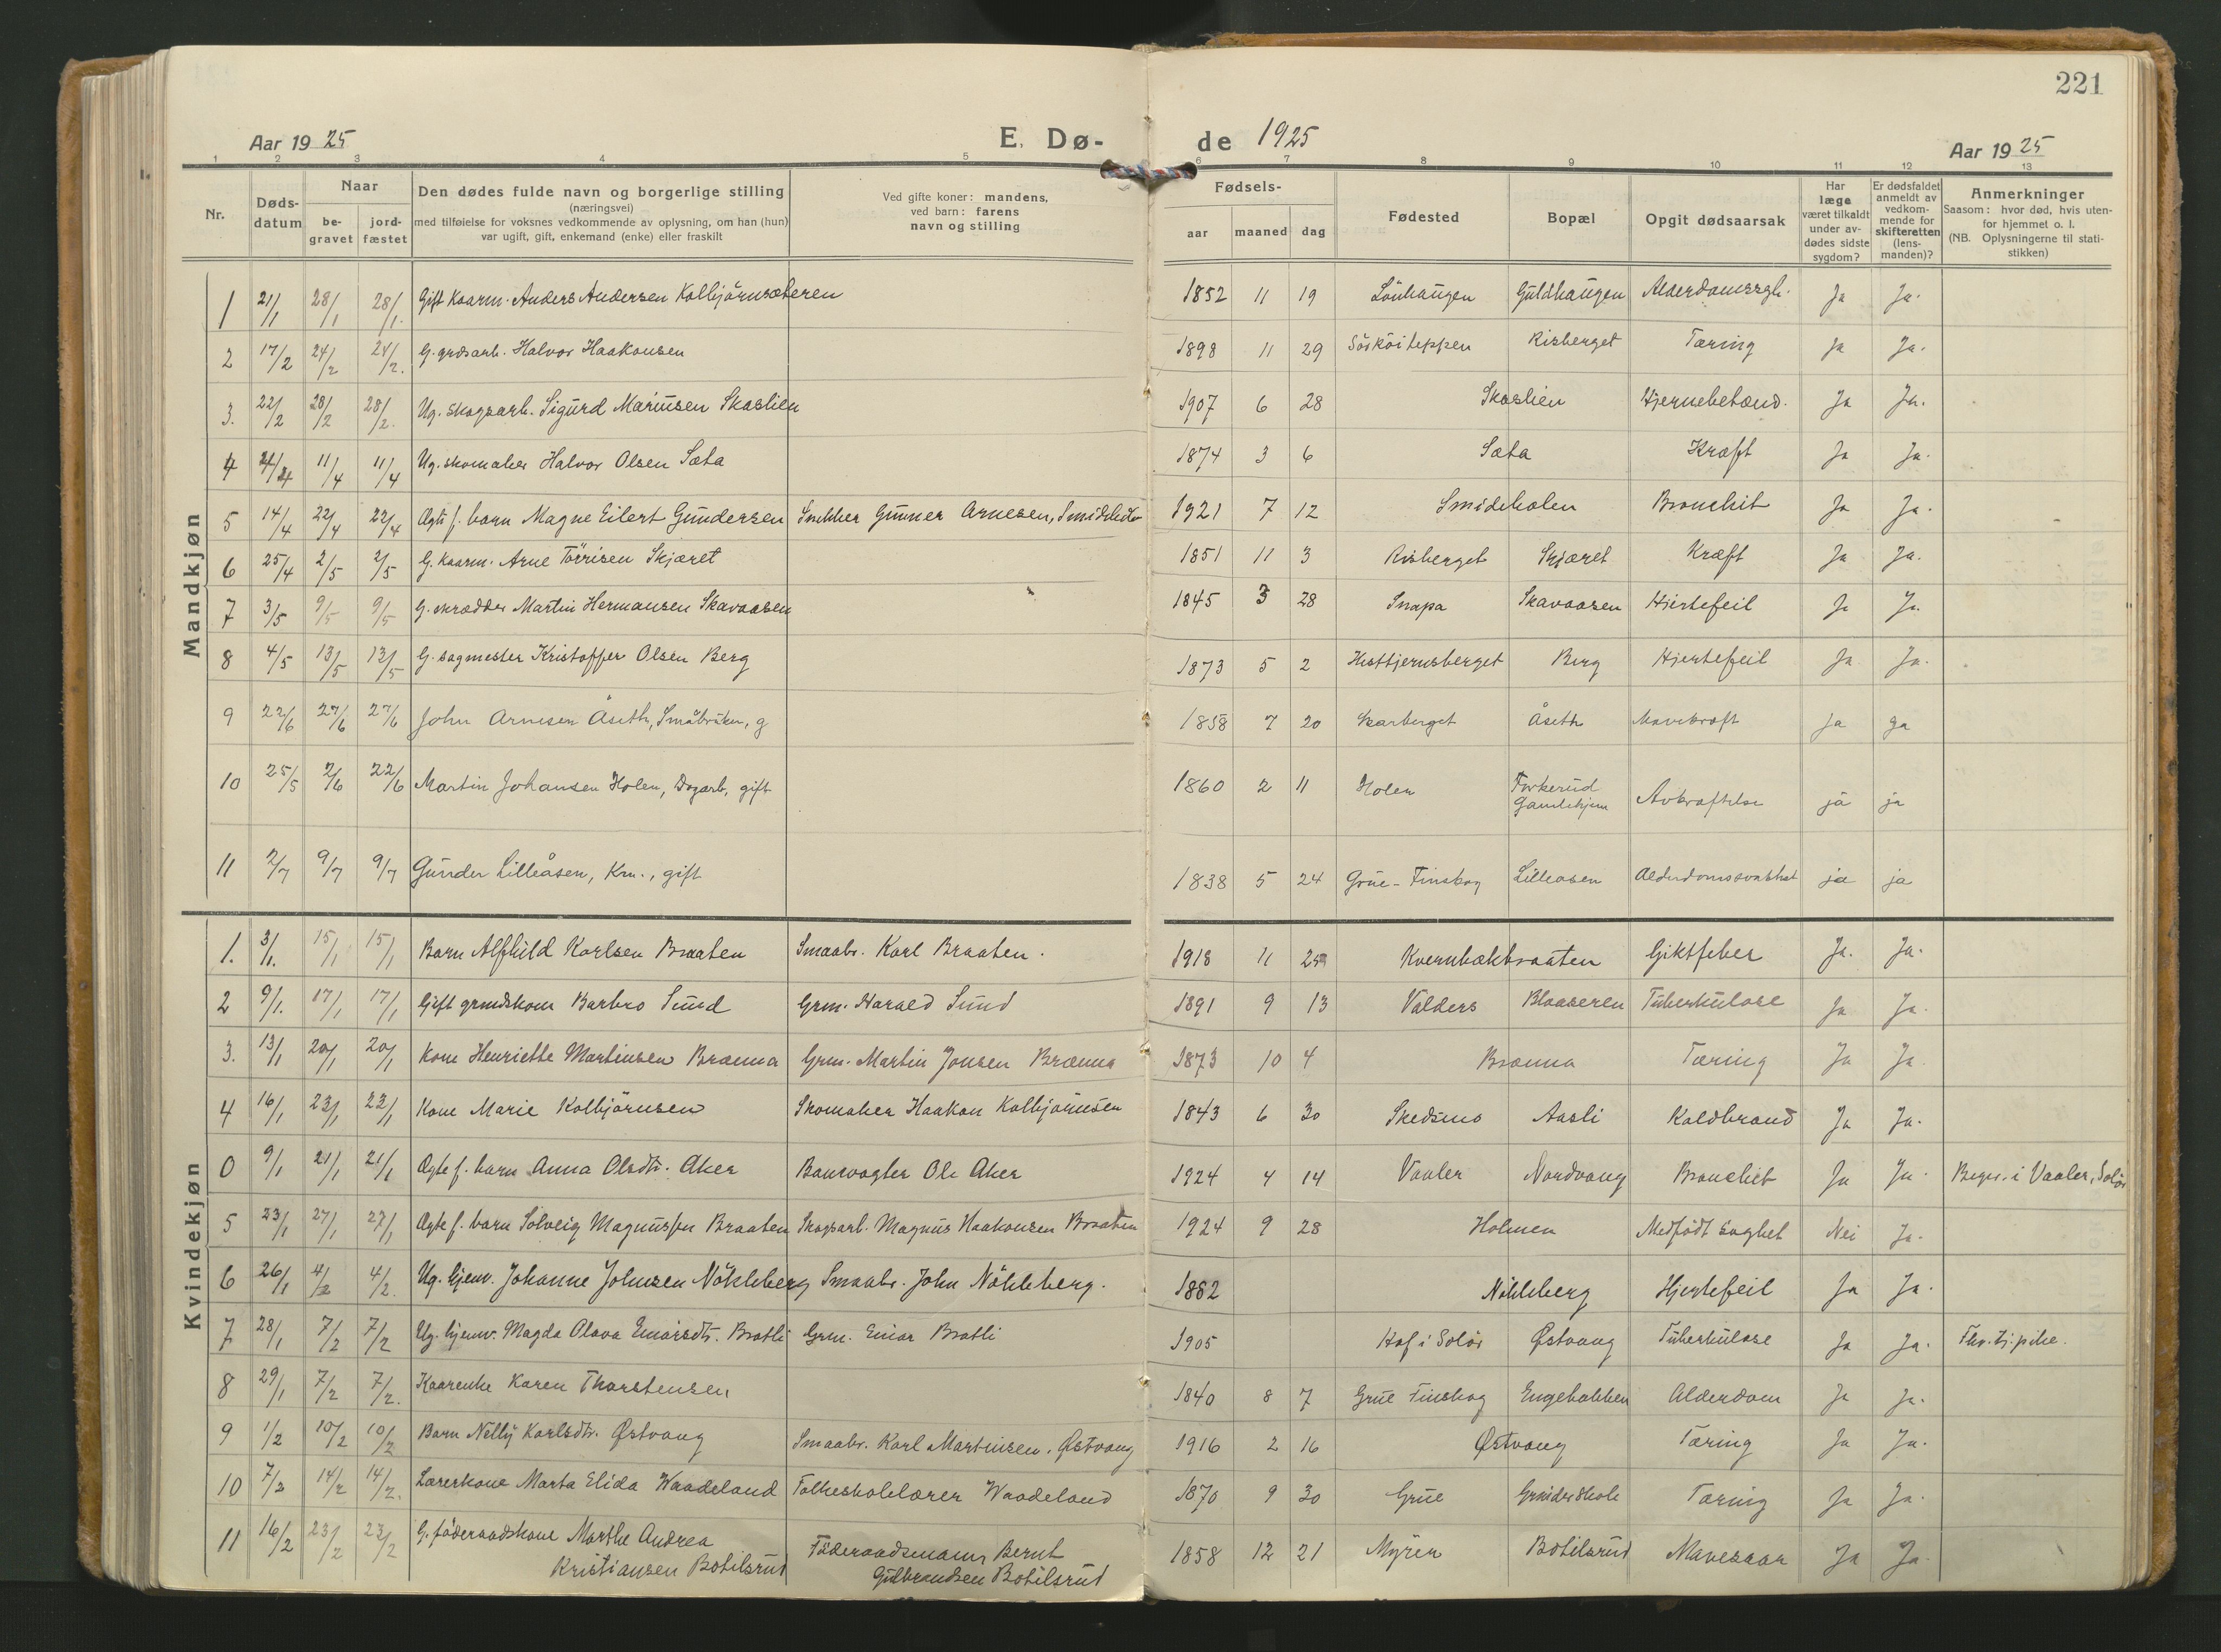 221
Aar 19 25
E. Dø-
de 1925
Aar 19 25
1 2 3 4 5 6 7 8 9 10 11 12 13
Nr.
Døds-
datum
Naar
be-
gravet
jord-
fæstet
Den dødes fulde navn og borgerlige stilling
(næringsvei)
med tilføielse for voksnes vedkommende av oplysning, om han (hun)
var ugift, gift, enkemand (enke) eller fraskilt
Ved gifte koner: mandens,
ved barn: farens
navn og stilling
Fødsels-
aar maaned dag
Fødested
Bopæl
Opgit dødsaarsak
Har
læge
været tilkaldt
under av-
dødes sidste
sygdom?
Er dødsfaldet
anmeldt av
vedkom-
mende for
skifteretten
(lens-
manden)?
Anmerkninger
Saasom: hvor død, hvis uten-
for hjemmet o. l.
(NB. Oplysningerne til stati-
stikken)
Mandkjøn
1 21/1 28/1 28/1. Gift Kaarm. Anders Andersen Kolbjörnsæteren 1852 11 19 Lönhaugen Guldhaugen Ja Ja.
2 17/2 24/2 24/2. G. grdsarb. Halvor Haakonsen 1898 11 29 Risberget Tæring Ja Ja.
3. 22/2 28/2 28/2. Ug. skogsarb. Sigurd Mariusen Skaslien 1907 6 28 Skaslien Hjernebetænd. Ja Ja.
4 11/4 11/4 Ug. skomaker Halvor Olsen Sæta 1874 3 6 Sæta Kræft Ja Ja.
5 14/4 22/4 22/4 Ægte f. barn Magne Eilert Gundersen Snekker Gunner Arnesen, 1921 7 12 Smidsholen Bronchit Ja Ja.
6 25/4 2/5 2/5 G. Kaarm. Arne Törrisen Skjæret 1851 11 3 Risberget Skjæret Kræft Ja Ja.
7 3/5 9/5 9/5 G. skrædder Martin Hermansen Skavaasen 1845 3 28 Snapa Skavaasen Hjertefeil Ja Ja.
8 4/5 13/5 13/5 G. sagmester Kristoffer Olsen Berg 1873 5 2 Berg Hjertefeil Ja Ja.
9 22/6 27/6 27/6 John Arnesen Åseth, Småbruker, g 1858 7 20 Skarberget Åseth Mavekræft ja ja
10 25/5 2/6 22/6 Martin Johansen Holen, Dagarb, gift 1860 2 11 Holen Forkerud
Gamlehjem Avkræftelse ja ja
11 2/7 9/7 9/7 Gunder Lilleåsen, Km., gift 1838 5 24 Grue-Finskog Lilleåsen Alderdomssvakhet ja ja
Kvindekjøn
1. 3/1. 15/1 15/1 Barn Alfhild Karlsen Braaten Smaabr. Karl Braaten. 1918 11 Kvernbækbraaten Giktfeber Ja. Ja.
2 9/1. 17/1 17/1 Gift grmdskone Barbro Sund Grm. Harald Sund 1891 9 13 Valders Blaaseren Tuberkulose Ja Ja.
3. 13/1 20/1 20/1 Kone Henriette Martinsen Brænna Grm. Martin Jonsen Brænna 1873 10 4 Brænna Tæring Ja Ja.
4 16/1 23/1 23/1 Kone Marie Kolbjörnsen Skomaker Haakon Kolbjörnsen 1843 6 30 Skedsmo Aasli Koldbrand Ja Ja.
0 9/1 21/1 21/1 Ægte f. barn Anna Olsdtr. Aker Banevogter Ole Aker 1924 4 14 Vaaler Nordvang Bronchit Ja Ja. Begr. i Vaaler, Solör
5 23/1 27/1 27/1 Ægte f. barn Solveig Magnussen Braaten Skogsarb. Magnus Haakonsen Braaten 1924 9 28 Holmen Medfödt svaghet Nei Ja.
6 26/1 4/2 4/2. Ug. hjemv. Johanne Johnsen Nökleberg Smaabr. John Nökleberg. 1882 Nökleberg Hjertefeil Ja Ja.
7 28/1 7/2 7/2 Ug. hjemv. Magda Olava Einarsdtr. Bratli Grm. Einar Bratli 1905 Hof i Solör Østvang Tuberkulose Ja Ja.
8 29/1 7/2 7/2. Kaarenke Karen Thorstensen 1840 8 7 Grue Finskog Engebakken Alderdom Ja Ja.
9 1/2 10/2 10/2 Barn Nelly Karlsdtr. Østvang Smaabr. Karl Martinsen, Østvang 1916 2 16 Østvang Tæring Ja Ja.
10 7/2 14/2 14/2. Lærerkone Marta Elida Waadeland Folkeskolelærer Waadeland 1870 9 30 Grue Grinder skole Tæring Ja Ja.
11 16/2 23/2 23/2 G. föderaadskone Marthe Andrea
Kristiansen Botilsrud Föderaadsmann Bernt
Gulbrandsen Botilsrud 1858 12 21 Myren Botilsrud Mavesaar Ja Ja.